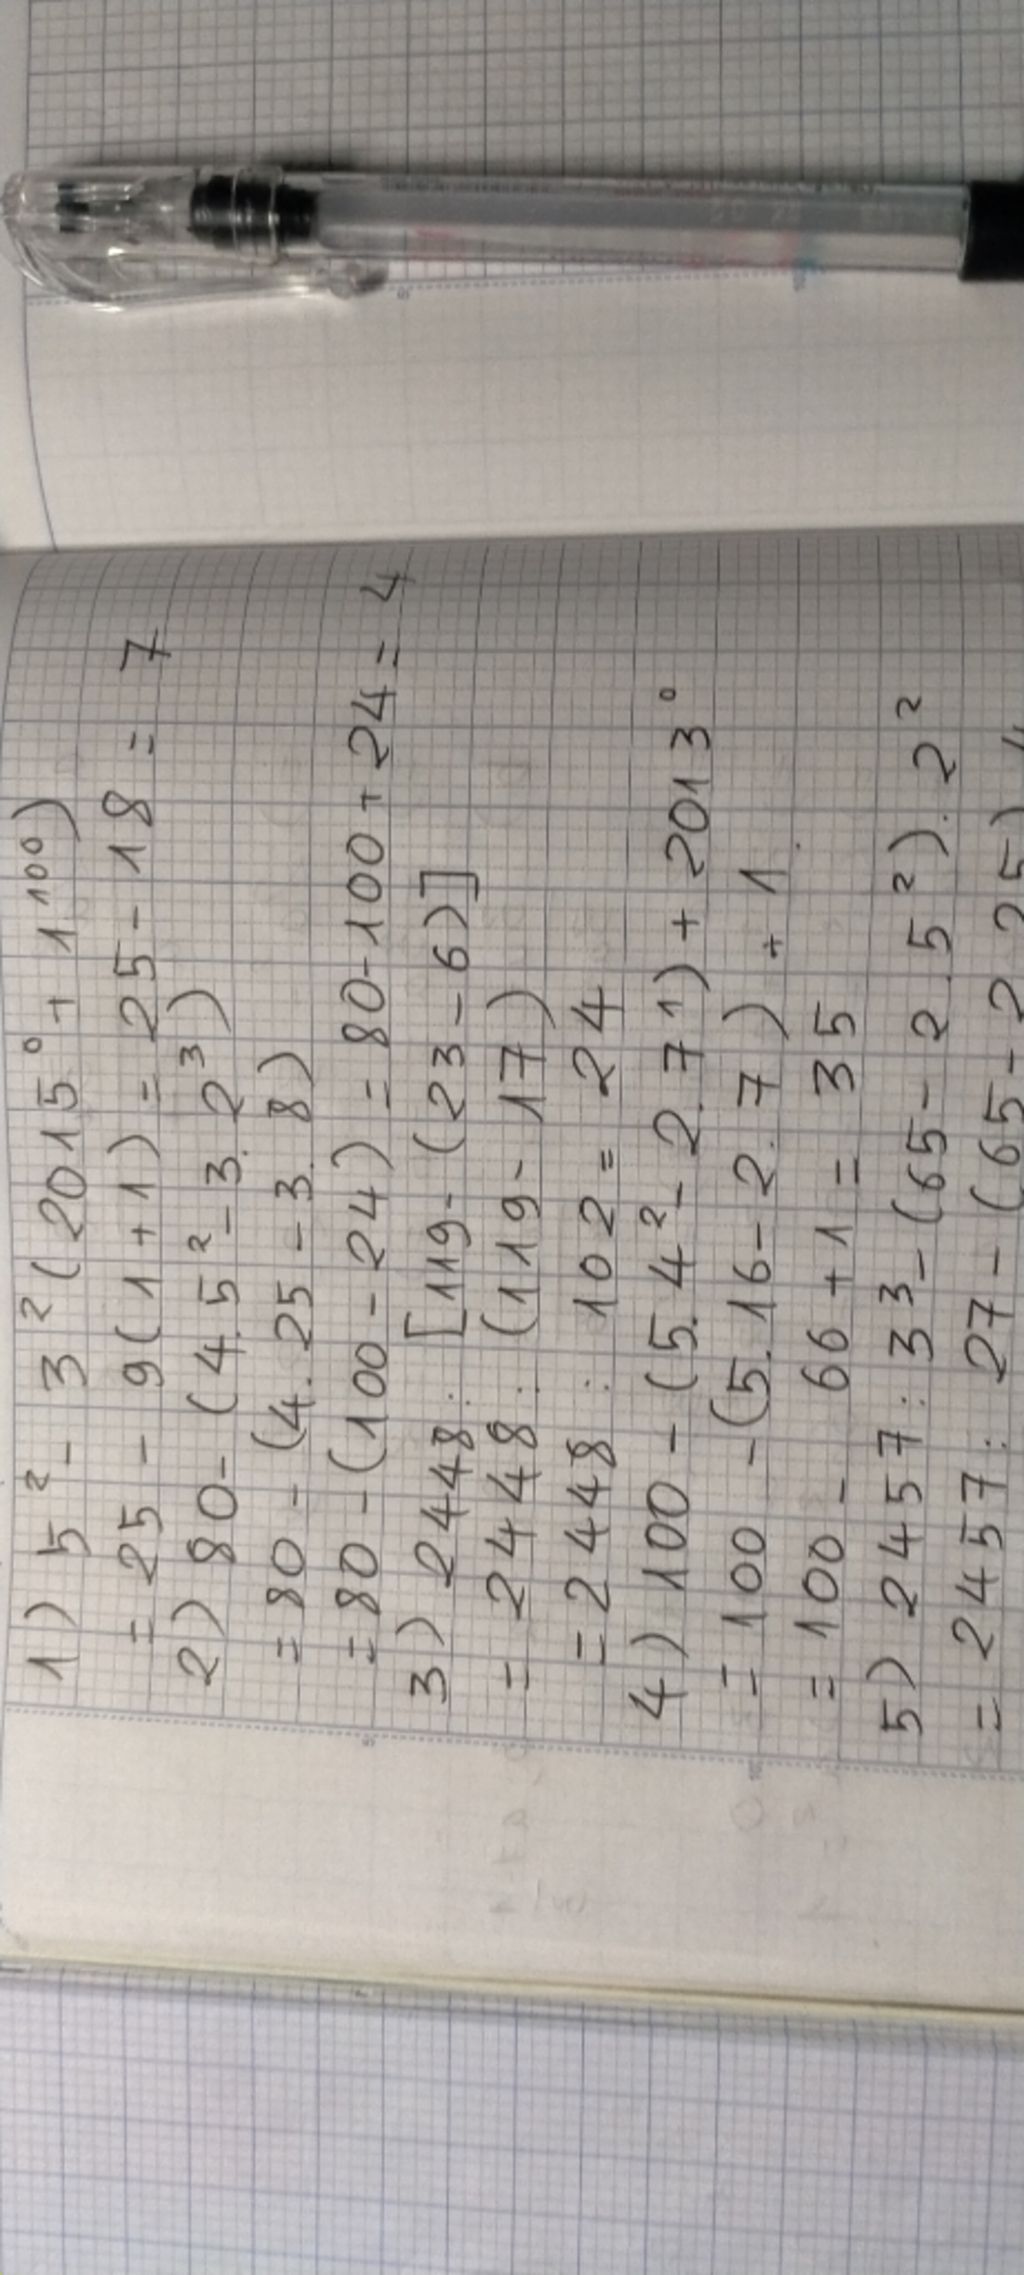 1) 5² - 3² (2015⁰ + 1¹⁰⁰)
= 25 - 9(1+1) = 25 - 18 = 7
2) 80 - (4.5² - 3.2³)
= 80 - (4.25 - 3.8)
= 80 - (100 - 24) = 80-100+24 = 4
3) 2448 : [119 - (23 - 6)]
= 2448 : (119 - 17)
= 2448 : 102 = 24
4) 100 - (5.4² - 2.7¹) + 2013⁰
= 100 - (5.16 - 2.7) + 1
= 100 - 66 + 1 = 35
5) 2457 : 3³ - (65 - 2.5²).2²
= 2457 : 27 - (65 - 2.25)